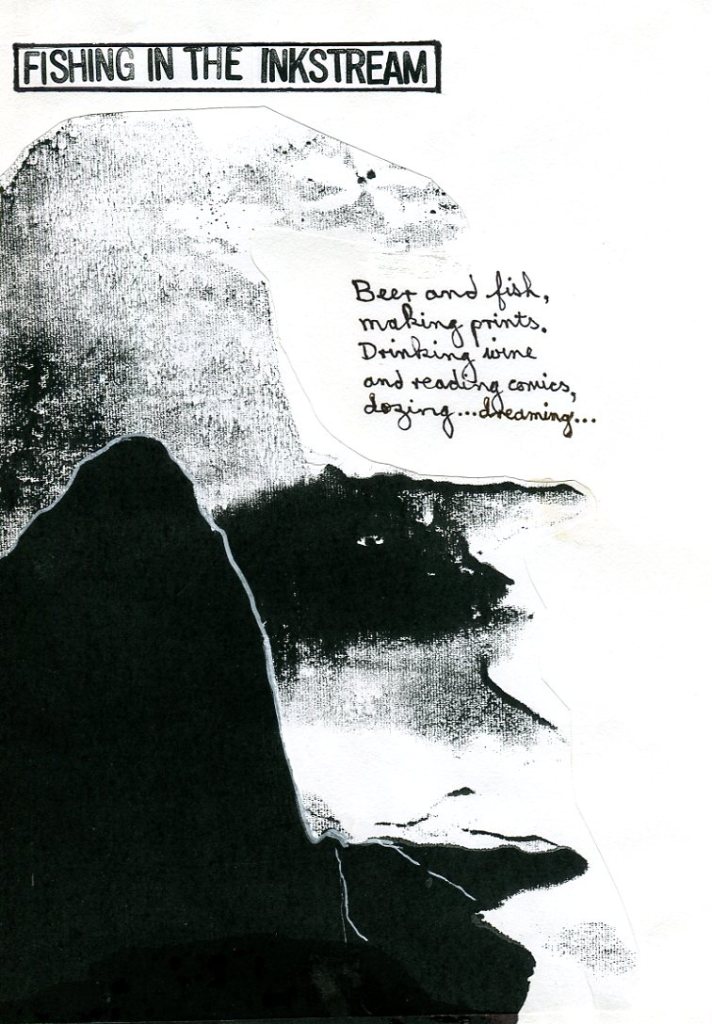 FISHING IN THE INKSTREAM
Beer and fish,
making prints.
Drinking wine
and reading comics,
dozing...dreaming...